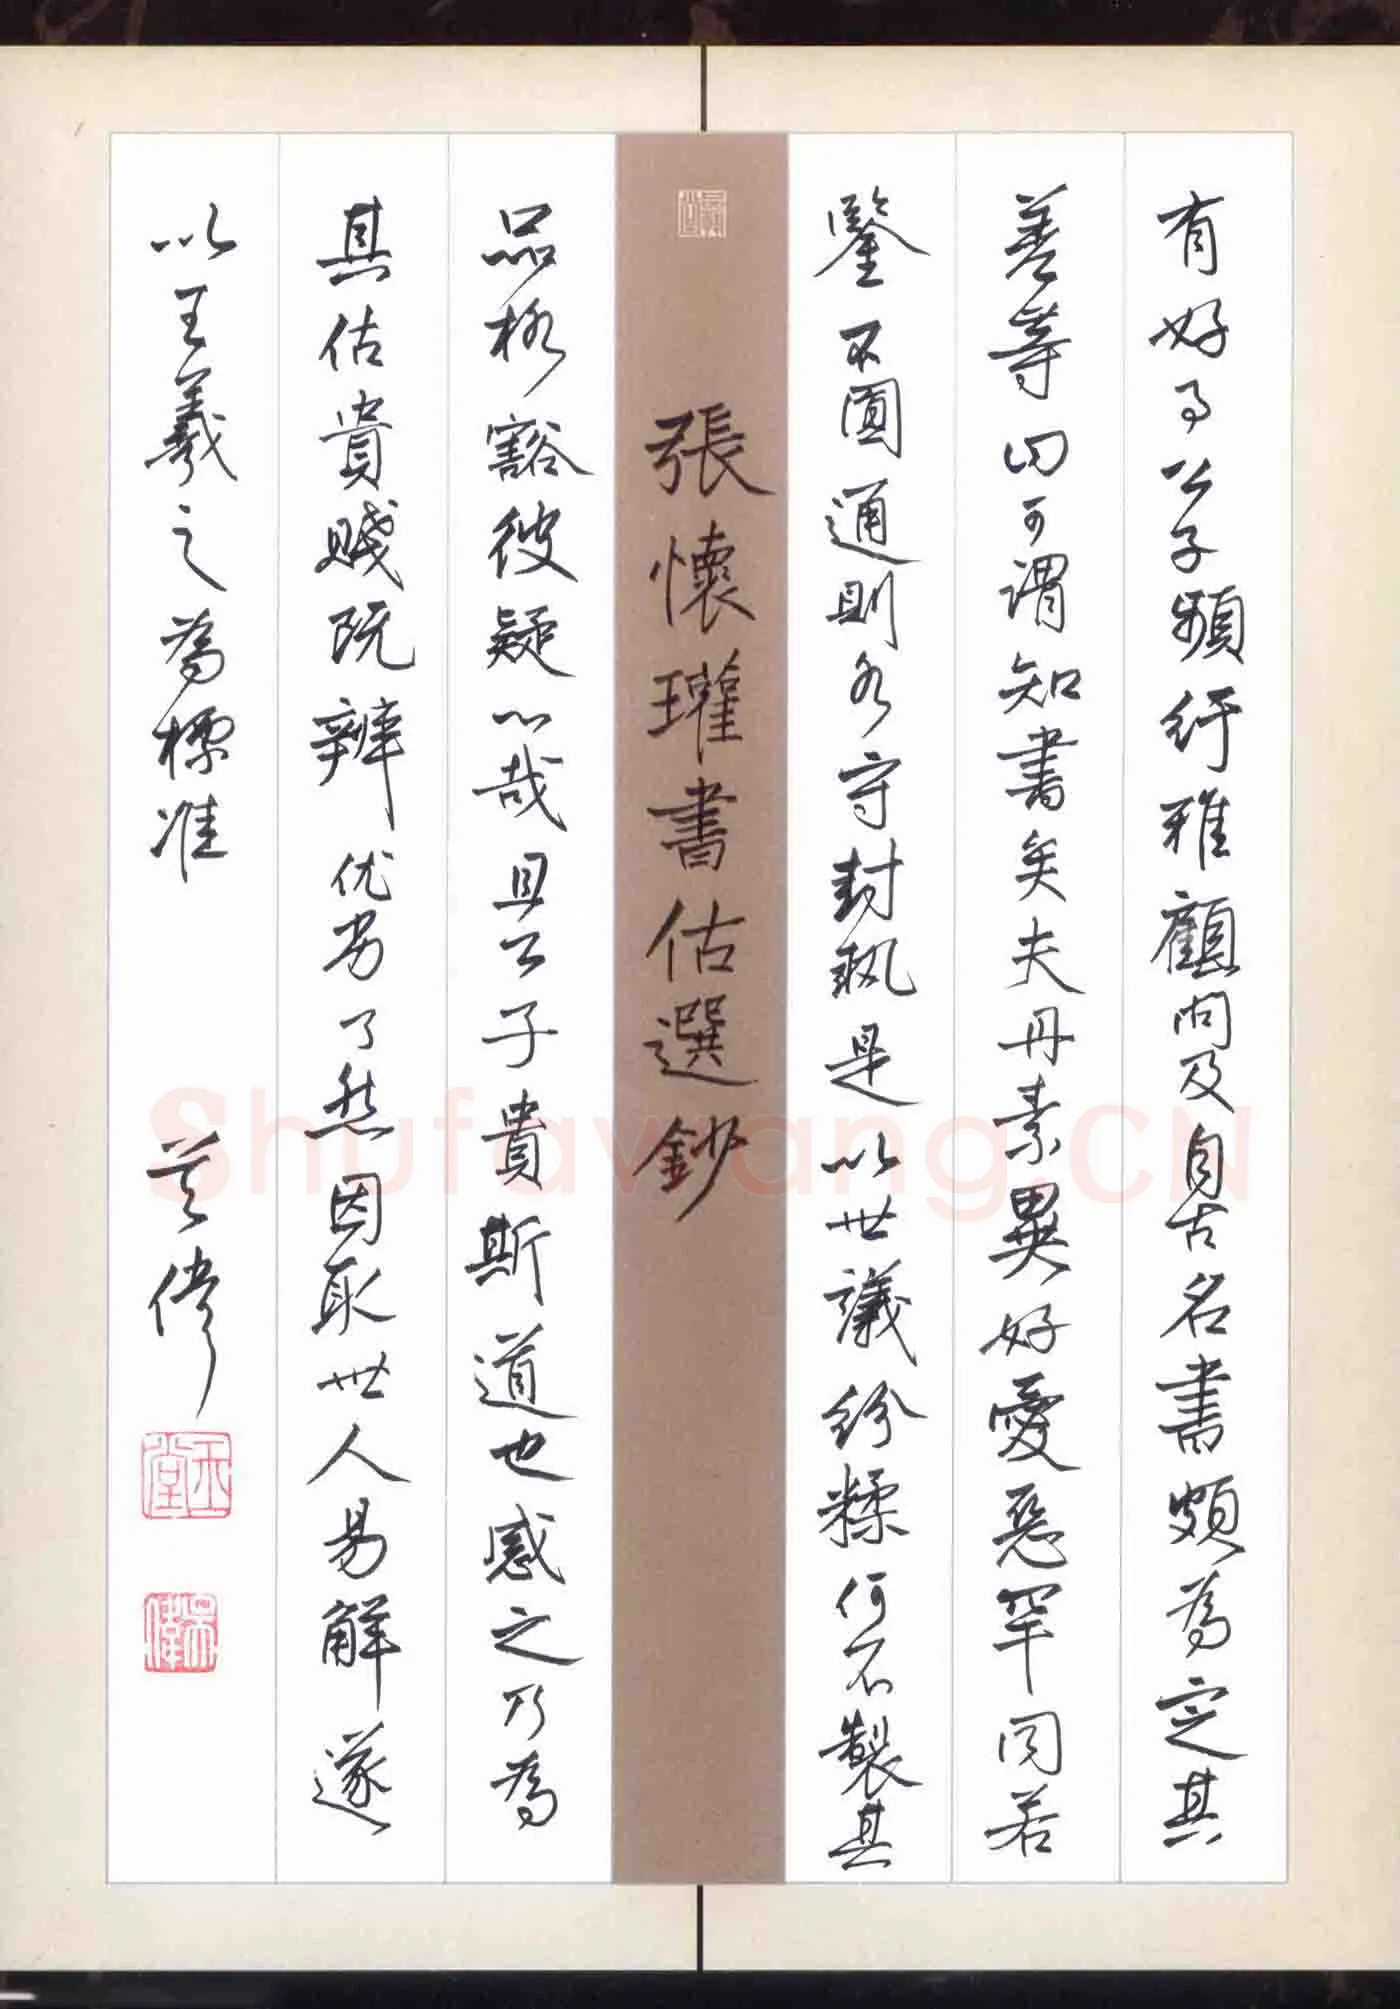 有好事公子頻紆雅顧問及自古名書頗為定其
差等曰可謂知書矣夫丹素異好愛惡罕同若
鑒不圓通則各守封執是以世議紛糅何不製其
張懷瓘書估選鈔
品格豁彼疑心哉且公子貴斯道也感之乃為
其估貴賤既辨优劣了然因取世人易解遂
以王羲之為標准
偉
Shufawang.CN